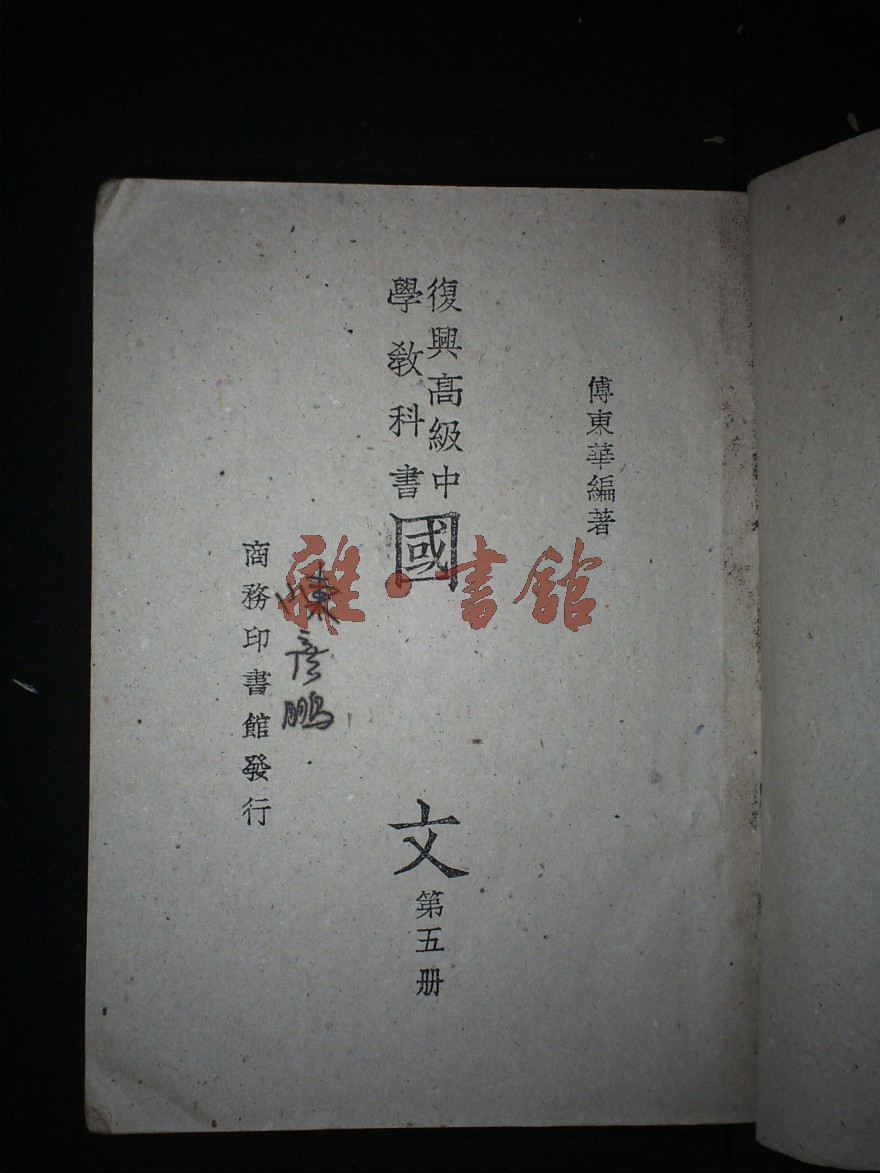 傅東華編著
復興高級中
學教科書
國文
第五册
陳彥鵬
商務印書館發行
雜·書館